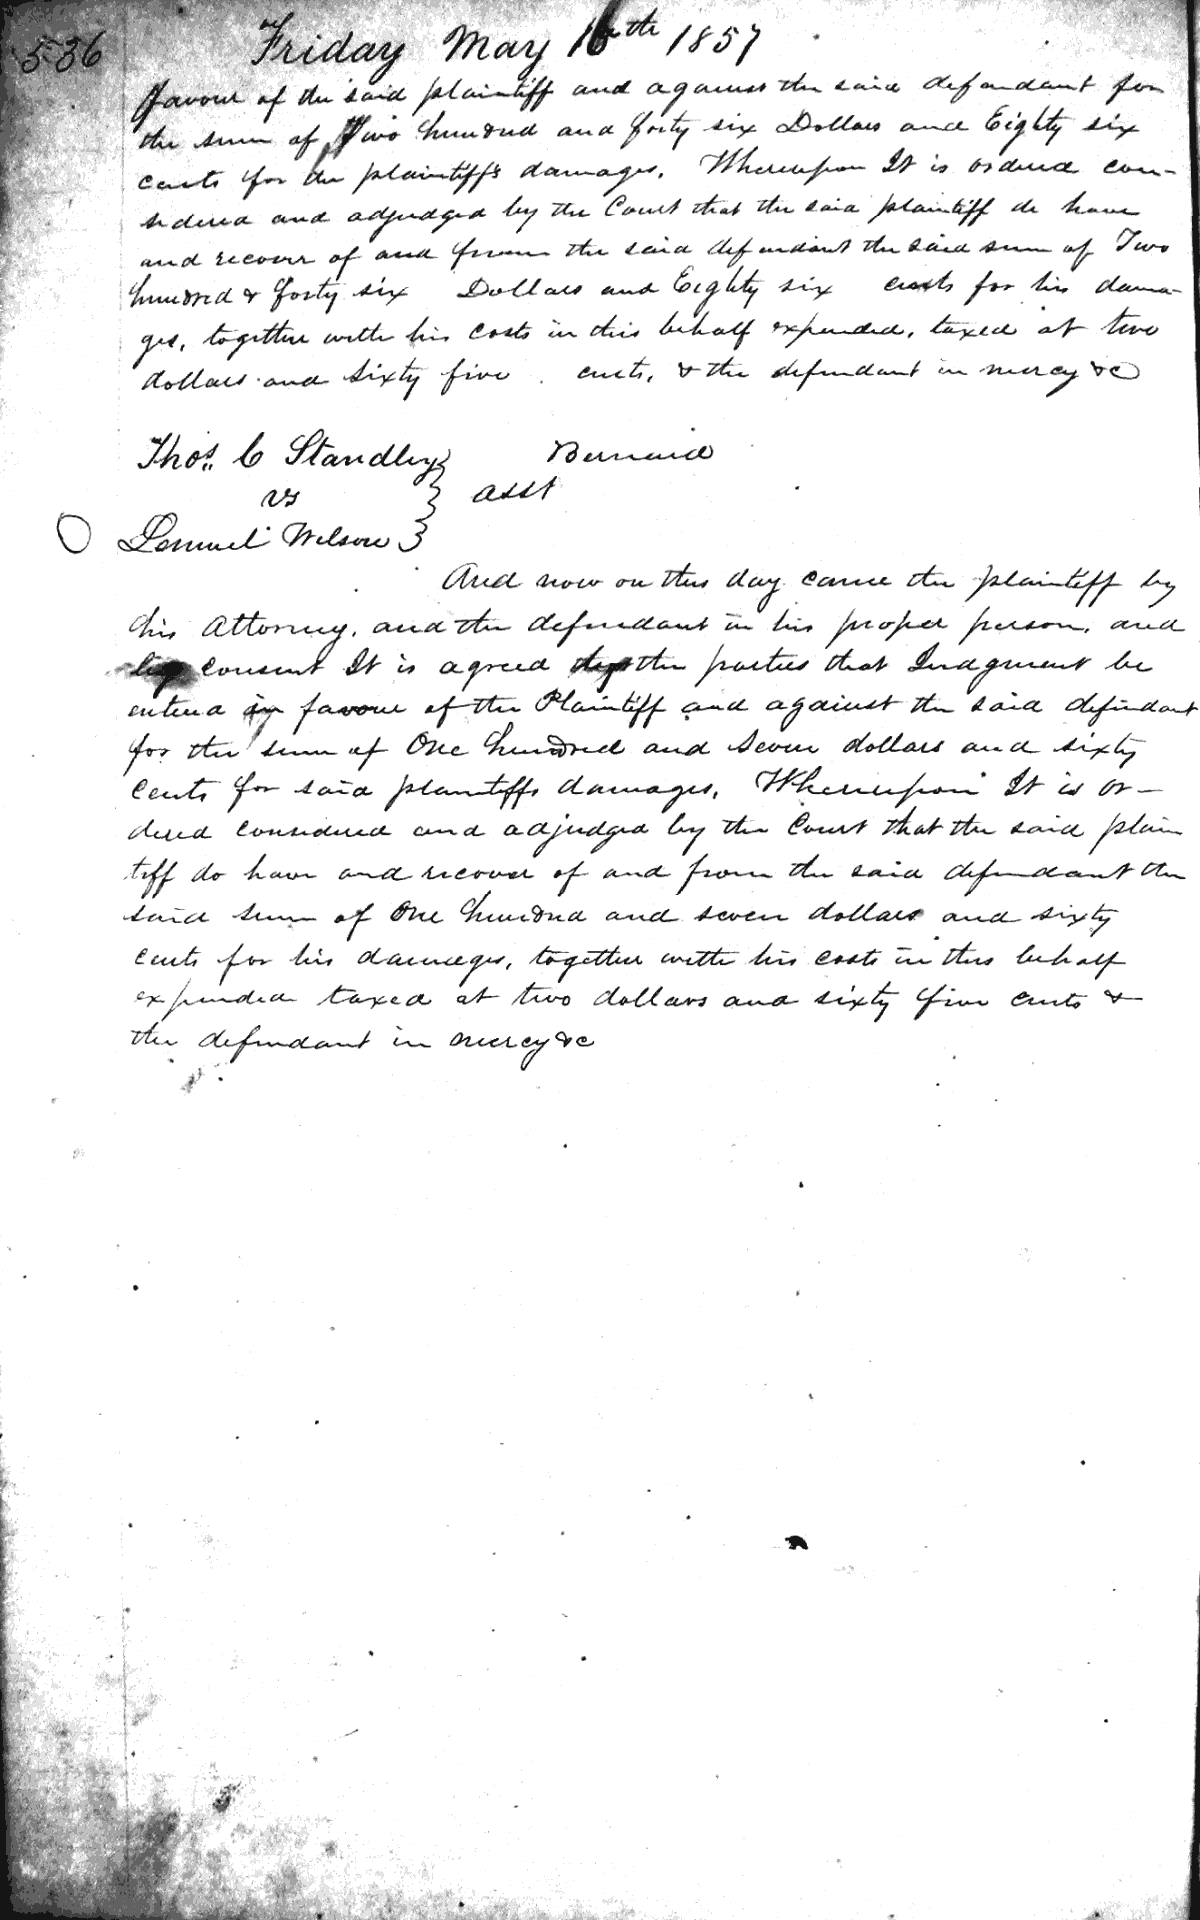 536 Friday May 16th 1857
favour of the said plaintiff and against the said defendant for
the sum of Two hundred and forty six Dollars and Eighty six
cents for the plaintiffs damages. Whereupon It is ordered con-
sidered and adjudged by the Court that the said plaintiff do have
and recover of and from the said defendant the said sum of Two
hundred & forty six Dollars and Eighty six cents for his dama-
ges, together with his costs in this behalf expended, taxed at two
dollars and sixty five cents, & the defendant in mercy &c
Thos. C Standley Bernard
vs asst
Lemuel Wilson
And now on this day came the plaintiff by
his Attorney, and the defendant in his proper person, and
by consent It is agreed by the parties that Judgment be
entered in favour of the Plaintiff and against the said defendant
for the sum of One hundred and seven dollars and sixty
cents for said plaintiffs damages, Whereupon It is or-
dered considered and adjudged by the Court that the said plain
tiff do have and recover of and from the said defendant the
said sum of One hundred and seven dollars and sixty
cents for his damages, together with his costs in this behalf
expended taxed at two dollars and sixty five cents &
the defendant in mercy &c